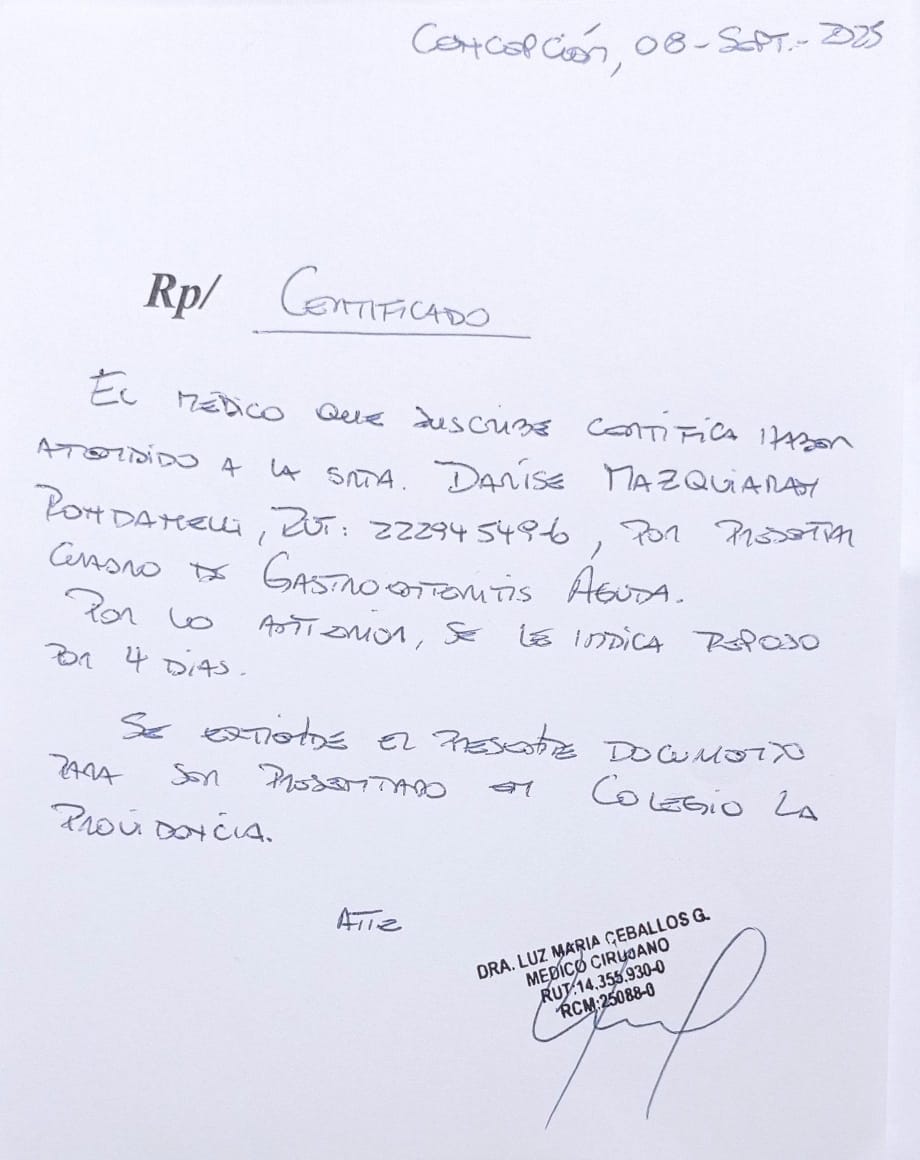 Concepción, 08-Sept.-2025
Rp/ Certificado
El médico que suscribe certifica haber
atendido a la Srta. Danise Mazquiaran
, Rut: 222945496, por presentar
cuadro de Gastroenteritis Aguda.
Por lo anterior, se le indica reposo
por 4 días.
Se extiende el presente documento
para ser presentado en Colegio La
Providencia.
Atte
DRA. LUZ MARIA CEBALLOS G.
MEDICO CIRUJANO
RUT:14.355.930-0
RCM:25088-0